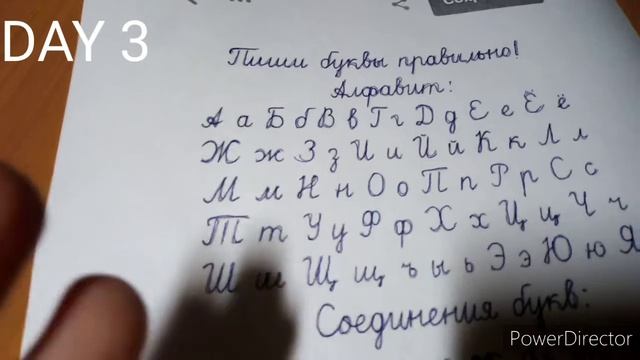 DAY 3
Пиши буквы правильно!
Алфавит:
А а Б б В в Г г Д д Е е Ё ё
Ж ж З з И и Й й К к Л л
М м Н н О о П п Р р С с
Т т У у Ф ф Х х Ц ц Ч ч
Ш ш Щ щ ъ ы ь Э э Ю ю Я
Соединения букв:
PowerDirector